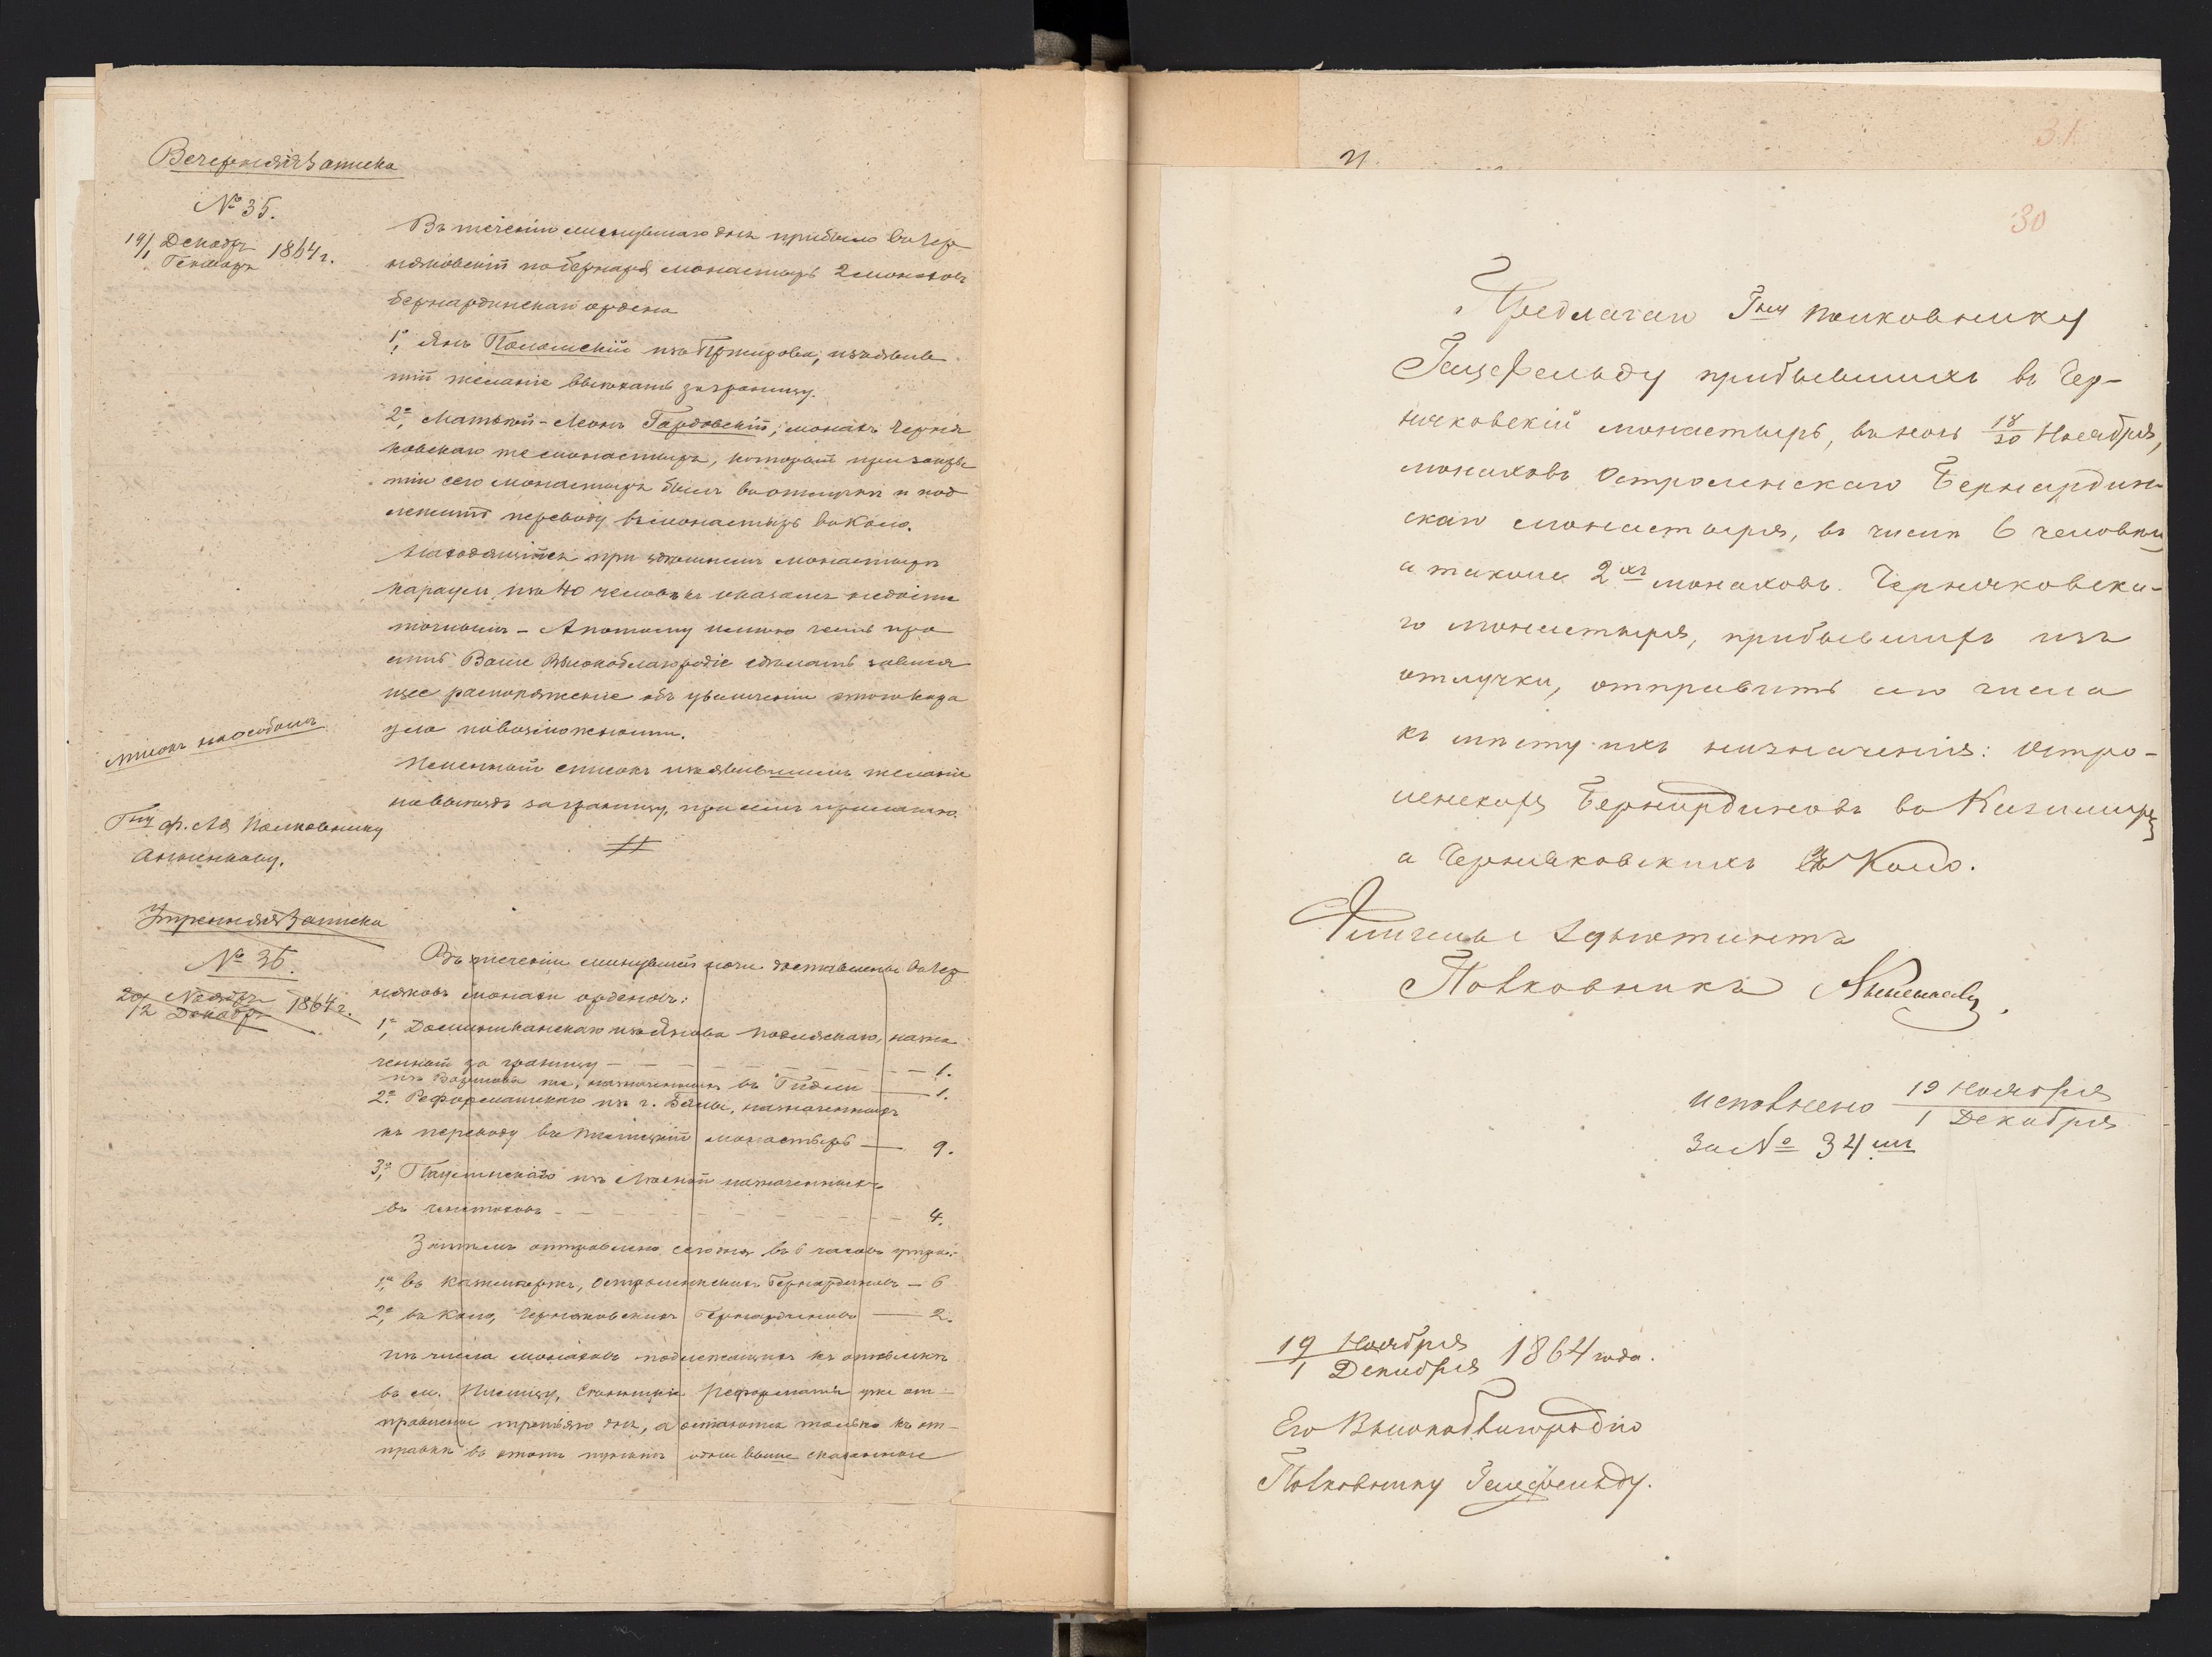 Вечерняя Записка
№ 35.
19/1 Декабр Генвар 1864 г.
Въ теченіи минувшаго дня прибыло въ Чер
няковскій по бернард. монастырь 2 монаховъ
бернардинскаго ордена
1. Янъ изъявив
шій желаніе выехать заграницу.
2. Матвей-Леонъ Гардовскій, монахъ Черня
ковскаго же монастыря, который при закры
тіи сего монастыря былъ въ отлучкѣ и под
лежитъ переводу въ монастырь въ Коло.
Находящійся при здешнемъ монастырѣ
караулъ изъ 40 человѣкъ оказался недоста
точнымъ - А потому имѣю честь про
сить Ваше Высокоблагородіе сдѣлать завися
щее распоряженіе объ увеличеніи этого кара
ула по возможности.
Именной списокъ изъявившимъ желаніе
на выездъ заграницу, при семъ прилагаю.
списокъ на особомъ
Гну ф. Ад. Полковнику
Анненкову.
Утренняя Записка
№ 36.
20/2 Ноябр Декабр 1864 г.
Въ теченіи минувшей ночи доставлены въ Чер
няковъ монахи орденовъ:
1. Доминиканскаго изъ Янова Подляскаго, назна
ченный за границу - 1.
же, назначенныхъ въ Гидли - 1.
2. Реформатскаго изъ г. Бялы, назначенныхъ
къ переводу въ монастырь - 9.
3. Паулинскаго изъ назначенныхъ
въ Ченстоховъ - 4.
Затемъ отправлено сегодня въ 6 часовъ утра:
1. въ Казимержъ, Остроленскихъ Бернардиновъ - 6
2. въ Коло, Черняковскихъ Бернардиновъ - 2.
изъ числа монаховъ подлежащихъ къ отсылкѣ
въ м. Реформаты уже от-
правлены третьяго дня, а остаются только къ от-
правкѣ въ этотъ пунктъ одни выше сказанные
31
30
Предлагаю Гну Полковнику
Гешефельду прибывшихъ въ Чер-
няковскій монастырь, въ ночь 18/30 Ноября,
монаховъ Остроленскаго Бернардин-
скаго монастыря, въ числѣ 6 человѣкъ
а также 2хъ монаховъ Черняковска-
го монастыря, прибывшихъ изъ
отлучки, отправить сего числа
къ мѣсту ихъ назначенія: Остро-
ленскихъ Бернардиновъ въ Казимиръ
а Черняковскихъ въ Коло.
Флигель Адъютантъ
Полковникъ Анненковъ.
исполнено 19 Ноября / 1 Декабря
За № 34 мъ
19 Ноября / 1 Декабря 1864 года.
Его Высокоблагородію
Полковнику Гешефельду.